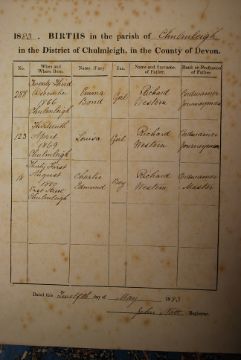 1883. BIRTHS in the parish of Chulmleigh
in the District of Chulmleigh, in the County of Devon.
No. When and Where Born. Name, if any. Sex. Name and Surname of Father. Rank or Profession of Father.
258 Twenty Third 1866 Chulmleigh Emma Bond Girl Richard Western Cordwainer Journeyman
123 Thirteenth 1869 Chulmleigh Louisa Girl Richard Western Cordwainer Journeyman
Thirty First August Chulmleigh Charlie Edmund Boy Richard Western Cordwainer Master
Dated this Twelfth day of May 1883
John Registrar.